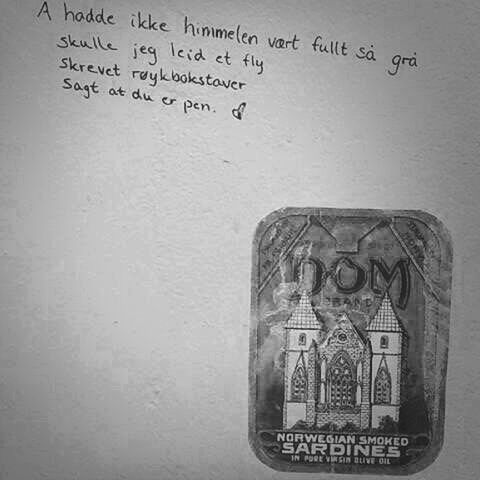 Å hadde ikke himmelen vært fullt så grå
skulle jeg leid et fly
skrevet røykbokstaver
Sagt at du er pen.
DOM
BRAND
NORWEGIAN SMOKED
SARDINES
IN PURE VIRGIN OLIVE OIL